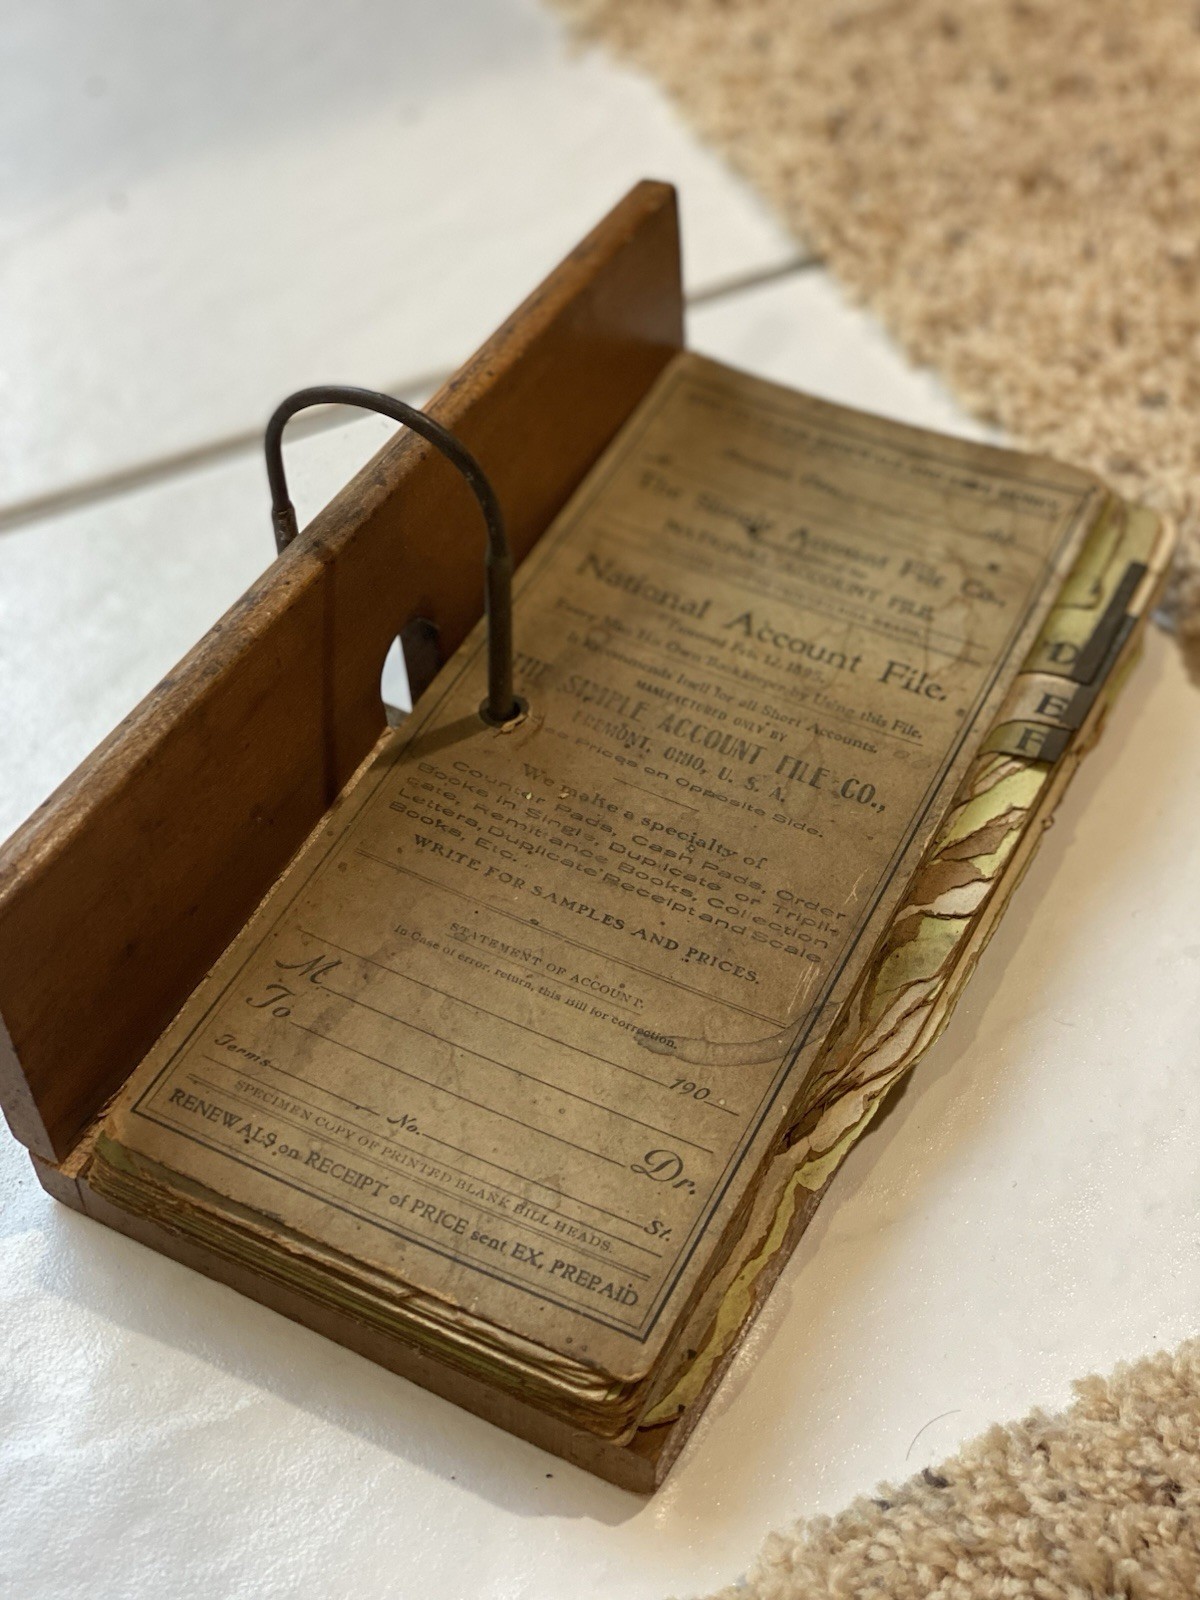 The Simple Account File Co.,
NATIONAL ACCOUNT FILE.
National Account File.
Patented Feb. 12, 1895.
Every Man His Own Bookkeeper by Using this File.
It Recommends Itself for all Short Accounts.
MANUFACTURED ONLY BY
THE SIMPLE ACCOUNT FILE CO.,
FREMONT, OHIO, U. S. A.
See Prices on Opposite Side.
We make a specialty of
Counter Pads, Cash Pads, Order
Books in Single, Duplicate or Tripli-
cate, Remittance Books, Collection
Letters, Duplicate Receipt and Scale
Books, Etc.
WRITE FOR SAMPLES AND PRICES.
STATEMENT OF ACCOUNT.
In Case of error, return, this Bill for correction.
190
M
To Dr.
Terms No. St.
SPECIMEN COPY OF PRINTED BLANK BILL HEADS.
RENEWALS on RECEIPT of PRICE sent EX, PREPAID
D
E
F